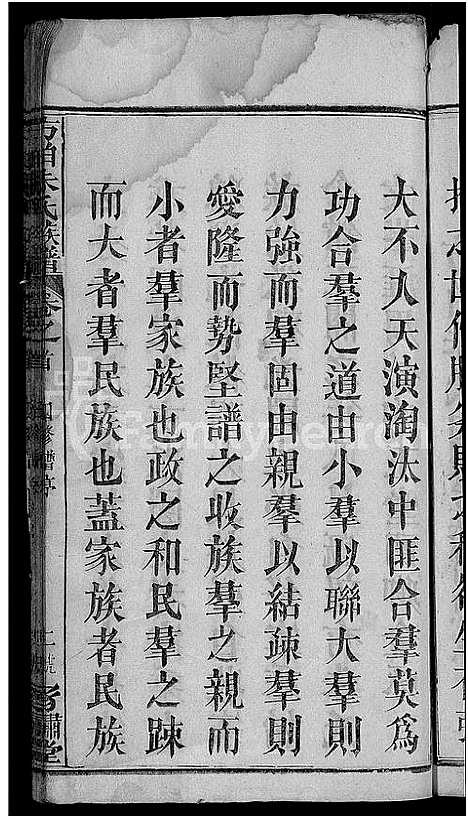 大不入天演淘汰中匪合羣莫爲
功合羣之道由小羣以聯大羣則
力強而羣固由親羣以結疎羣則
愛隆而勢堅譜之收族羣之親而
小者羣家族也政之和民羣之踈
而大者羣民族也蓋家族者民族
朱氏族譜 卷之首 四修譜序